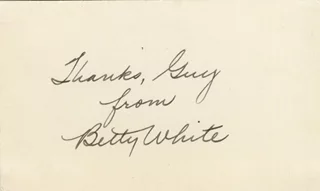 Thanks, Guy
from
Betty White